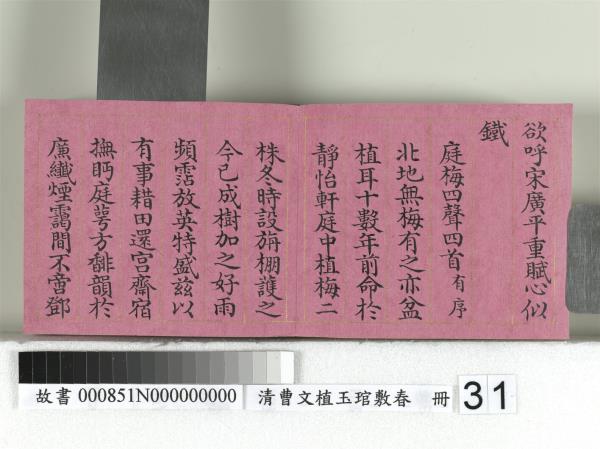 欲呼宋廣平重賦心似
鐵
庭梅四聲四首有序
北地無梅有之亦盆
植耳十數年前命於
靜怡軒庭中植梅二
株冬時設旃棚護之
今已成樹加之好雨
頻霑放英特盛茲以
有事耤田還宮齋宿
撫眄庭萼方馡韻於
簾纖煙靄間不啻鄧
故書 000851N000000000
清曹文植玉琯敷春 冊
31